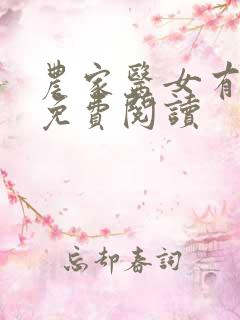 農家醫女有
免費閱讀
忘却春詞